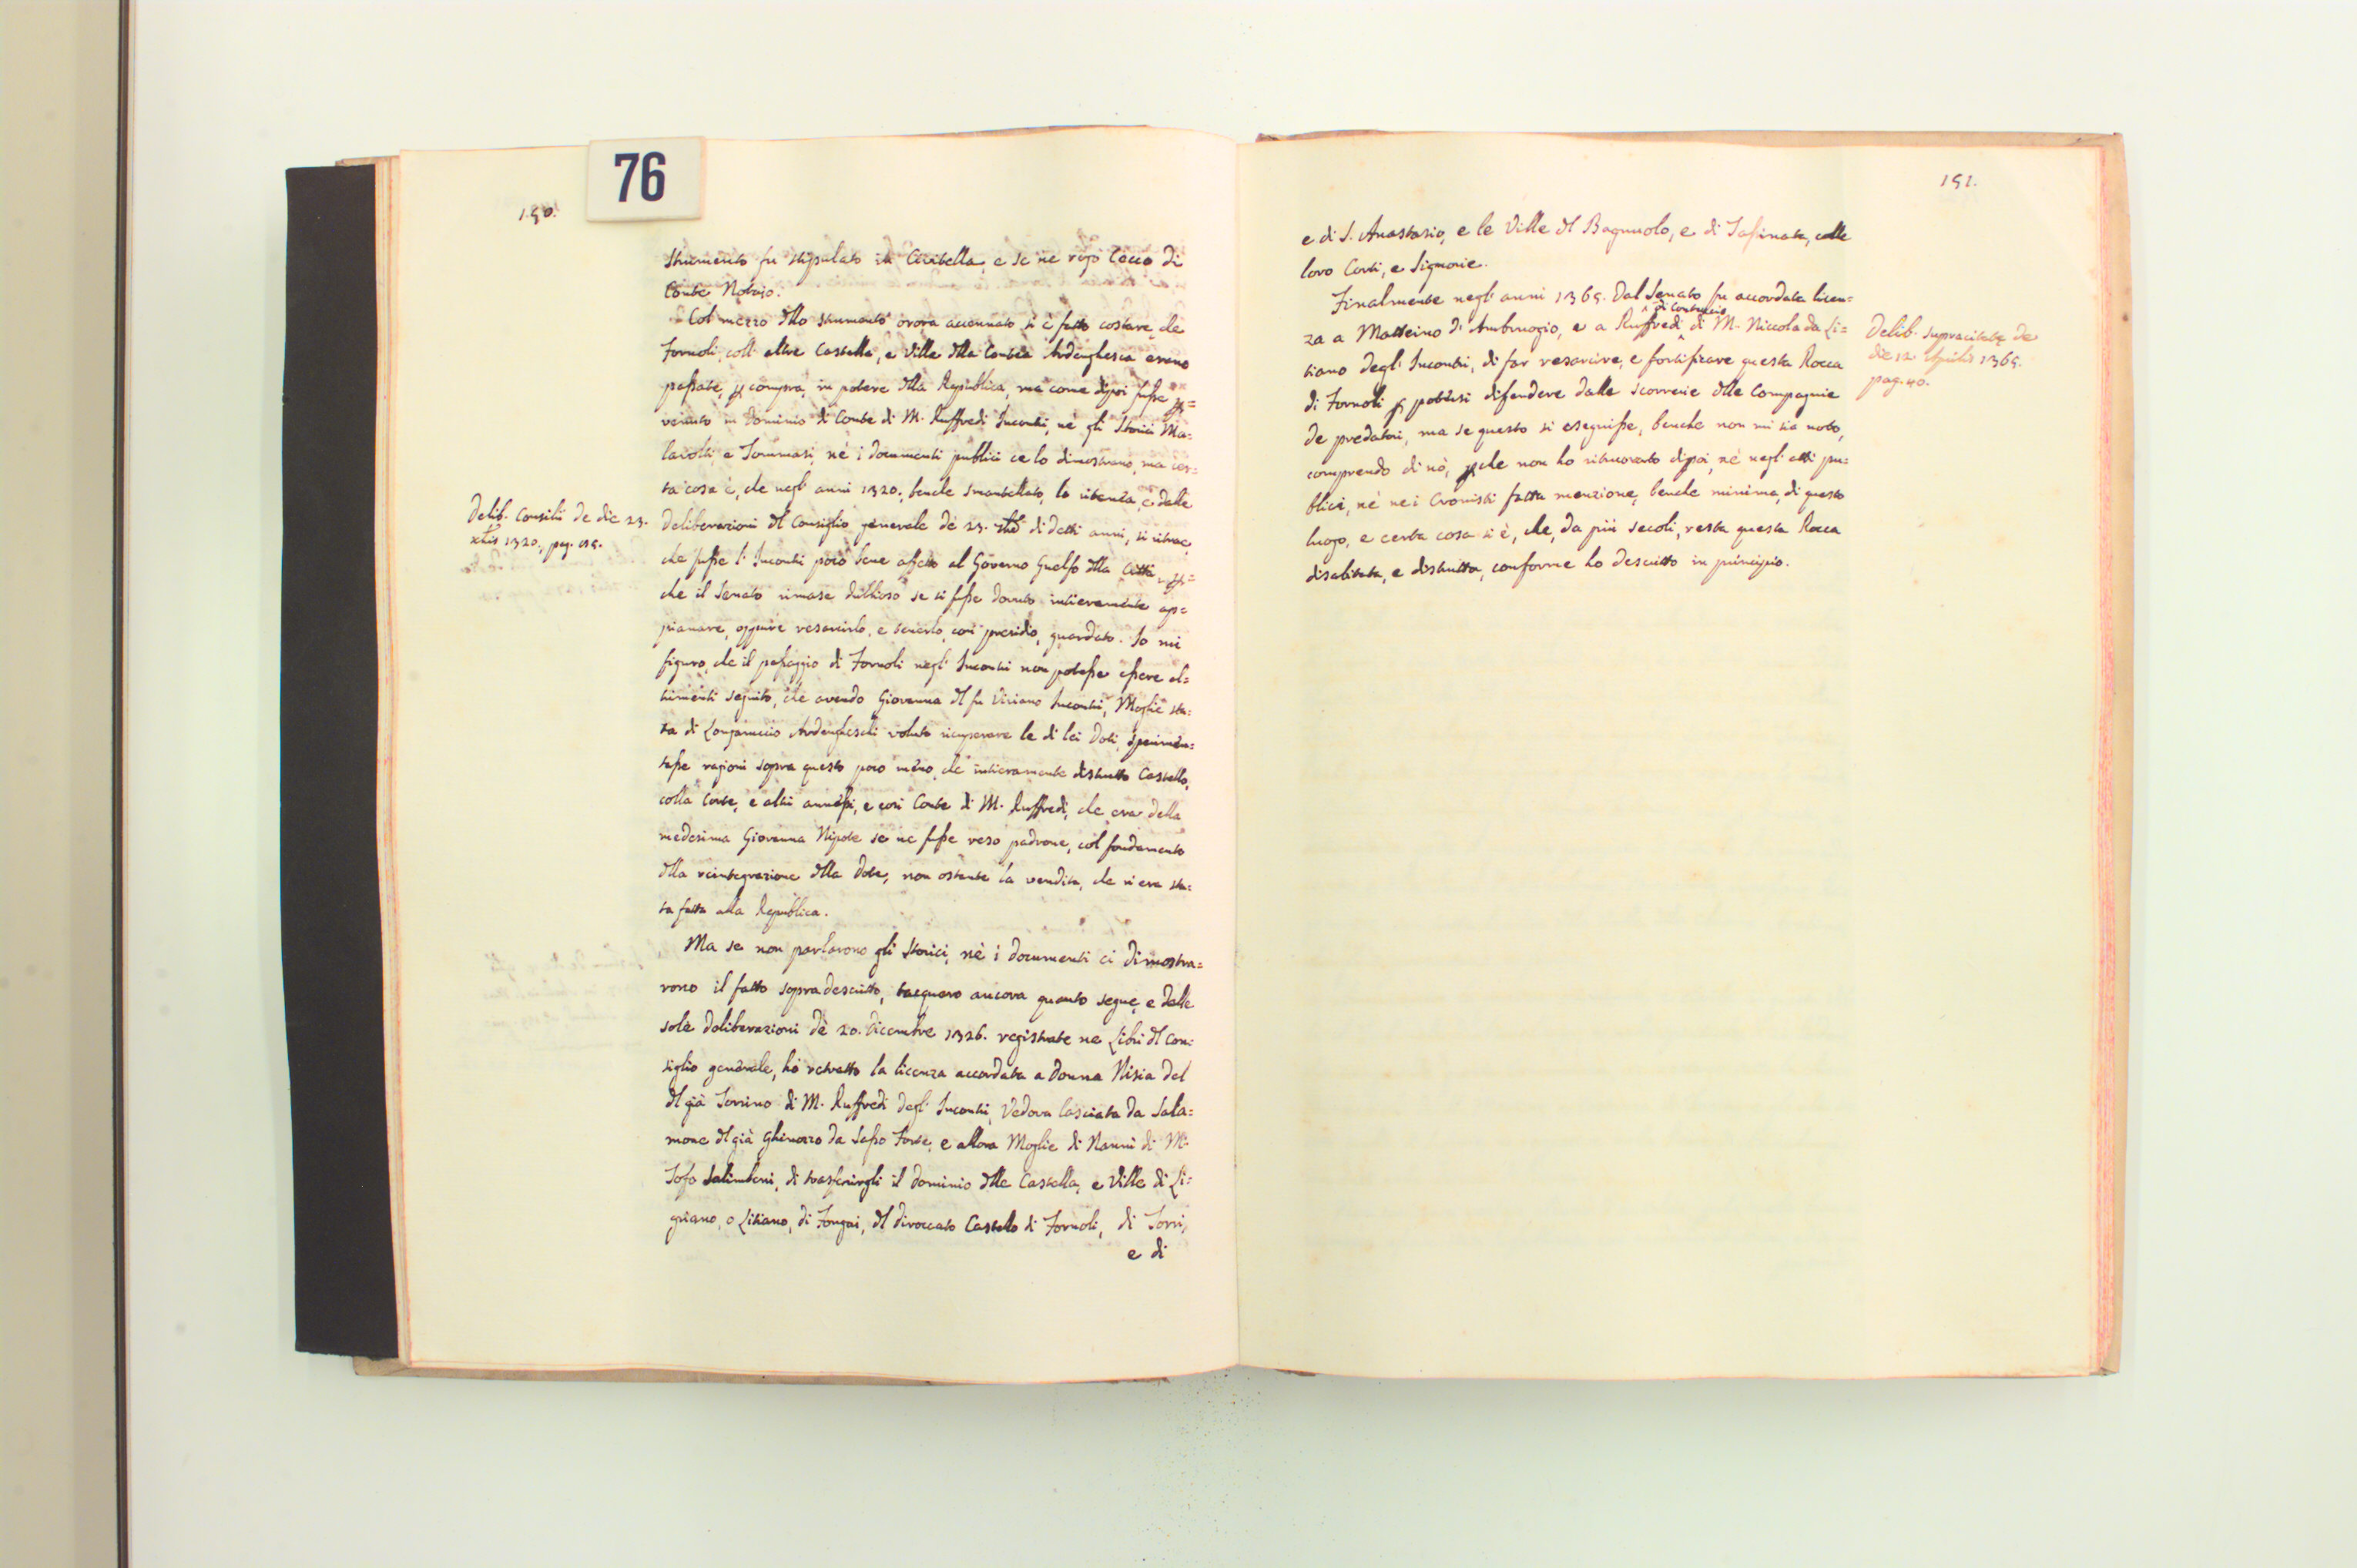 76
150.
strumento fu stipulato in Civitella, e se ne rogò Cecco di
Conte Notajo.
Col mezzo dllo strumento orora accennato si è fatto costare, che
Fornoli, coll' altre Castella, e Ville dlla Contea Ardenghesca erano
passate, p compra, in potere dlla Republica, ma come dipoi fusse p=
venuto in dominio di Conte di M. Ruffredi Incontri, nè gli Storici Ma=
lavolti, e Tommasi, nè i documenti publici ce lo dimostrano, ma cer=
ta cosa è, che negl' anni 1320., benche smantellato, lo riteneva, e dalle
Delib. Consilii de die 23.
xbris 1320., pag.
deliberazioni dl Consiglio generale de 23. xbre di detti anni, si ritrae,
che fusse l' Incontri poco bene affetto al Governo Guelfo dlla Città, p=
che il Senato rimase dubbioso se si fusse dovuto intieramente ap=
pianare, oppure resarcirlo, e tenerlo, con presidio, guardato. Io mi
figuro, che il passaggio di Fornoli negl' Incontri non potesse essere al=
trimenti seguito, che avendo Giovanna dl fu Viviano Incontri, Moglie sta=
ta di Longaruccio Ardengheschi voluto ricuperare le di lei Doti, sperimen=
tasse ragioni sopra questo poco meno, che intieramente distrutto Castello,
colla Corte, e altri annessi, e così Conte di M. Ruffredi, che era della
medesima Giovanna Nipote se ne fusse reso padrone, col fondamento
dlla reintegrazione dlla Dote, non ostante la vendita, che n'era sta=
ta fatta alla Republica.
Ma se non parlarono gli Storici, nè i documenti ci dimostra=
rono il fatto sopradescritto, tacquero ancora quanto segue, e dalle
sole deliberazioni de 20. Dicembre 1326. registrate ne Libri dl Con=
siglio generale, ho retratto la licenza accordata a Donna Nisia del
dl già Sorrino di M. Ruffredi degl' Incontri, Vedova lasciata da Sala=
mone dl già Ghinozzo da Sasso Forte, e allora Moglie di Nanni di M.
Sozo Salimbeni, di trasferirgli il dominio dlle Castella, e Ville di Li=
griano, o Litiano, di Fongai, dl diroccato Castello di Fornoli, di Torri,
e di
151.
e di S. Anastasio, e le Ville dl Bagnuolo, e di Tassinata, colle
loro Corti, e Signorie.
Finalmente negl' anni 1365. dal Senato fu accordata licen=
di Contruccio
za a Matteino di Ambruogio, e a Ruffredi di M. Niccola da Li=
Delib. supracitate de
die 12 Aprilis 1365.
pag. 40.
tiano degl' Incontri, di far resarcire, e fortificare questa Rocca
di Fornoli p potersi difendere dalle scorrerie dlle Compagnie
de predatori, ma se questo si eseguisse, benche non mi sia noto,
comprendo di nò, pche non ho ritrovato dipoi, nè negl' atti pu=
blici, nè nei Cronisti fatta menzione, benche minima, di questo
luogo, e certa cosa si è, che, da più secoli, resta questa Rocca
disabitata, e distrutta, conforme ho descritto in principio.